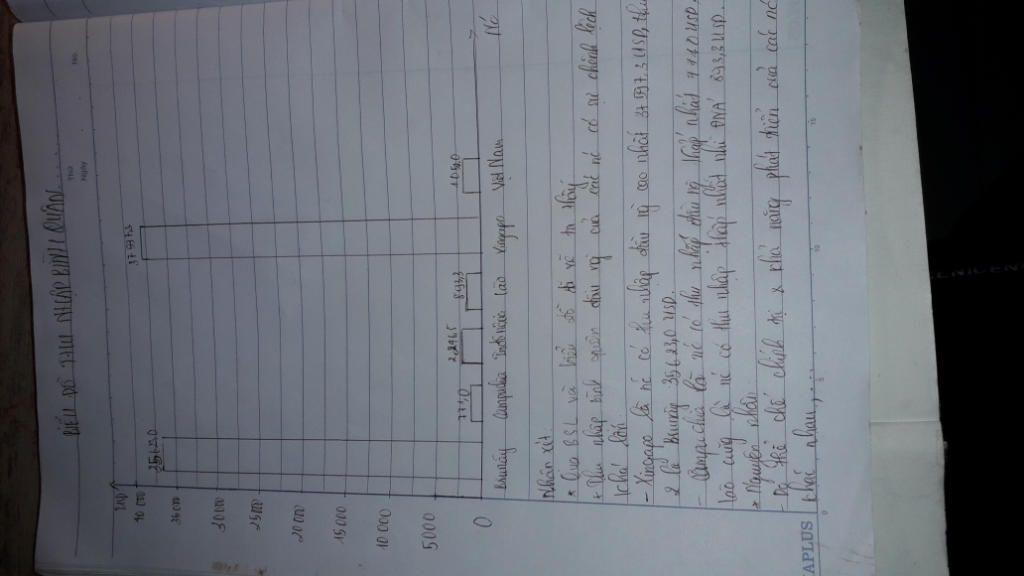 BIỂU ĐỒ THU NHẬP BÌNH QUÂN
No.
Thứ
Ngày
USD
40 000
35 000
30 000
25 000
20 000
15 000
10 000
5000
0
35623,0
777,0
2,246,5
893,3
37597,3
1052,0
Brunây Campuchia Inđônêxia Lào Xingapo Việt Nam Nc
Nhận xét
* Qua BSL và biểu đồ đã vẽ ta thấy
+ Thu nhập bình quân đầu ng của các nc có sự chênh lệch
khá lớn
- Xingapo là nc có thu nhập đầu ng cao nhất 37 597,3 USD, thứ
2 là Brunây 35623,0 USD.
- Campuchia là nc có thu nhập đầu ng thấp nhất 777,0 USD.
Lào cũng là nc có thu nhập thấp nhất nhì ĐNÁ 893,3 USD.
* Nguyên nhân
- Do thể chế chính trị khả năng phát triển của các nc
khác nhau,...
APLUS
0
5
10
15